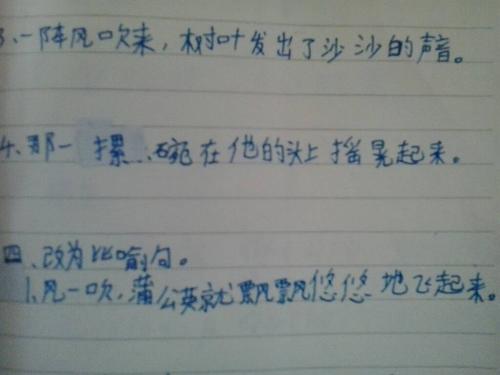 3、一阵风吹来，树叶发出了沙沙的声音。
4、那一摞碗在他的头上摇晃起来。
四、改为比喻句。
1、风一吹，蒲公英就飘飘悠悠地飞起来。